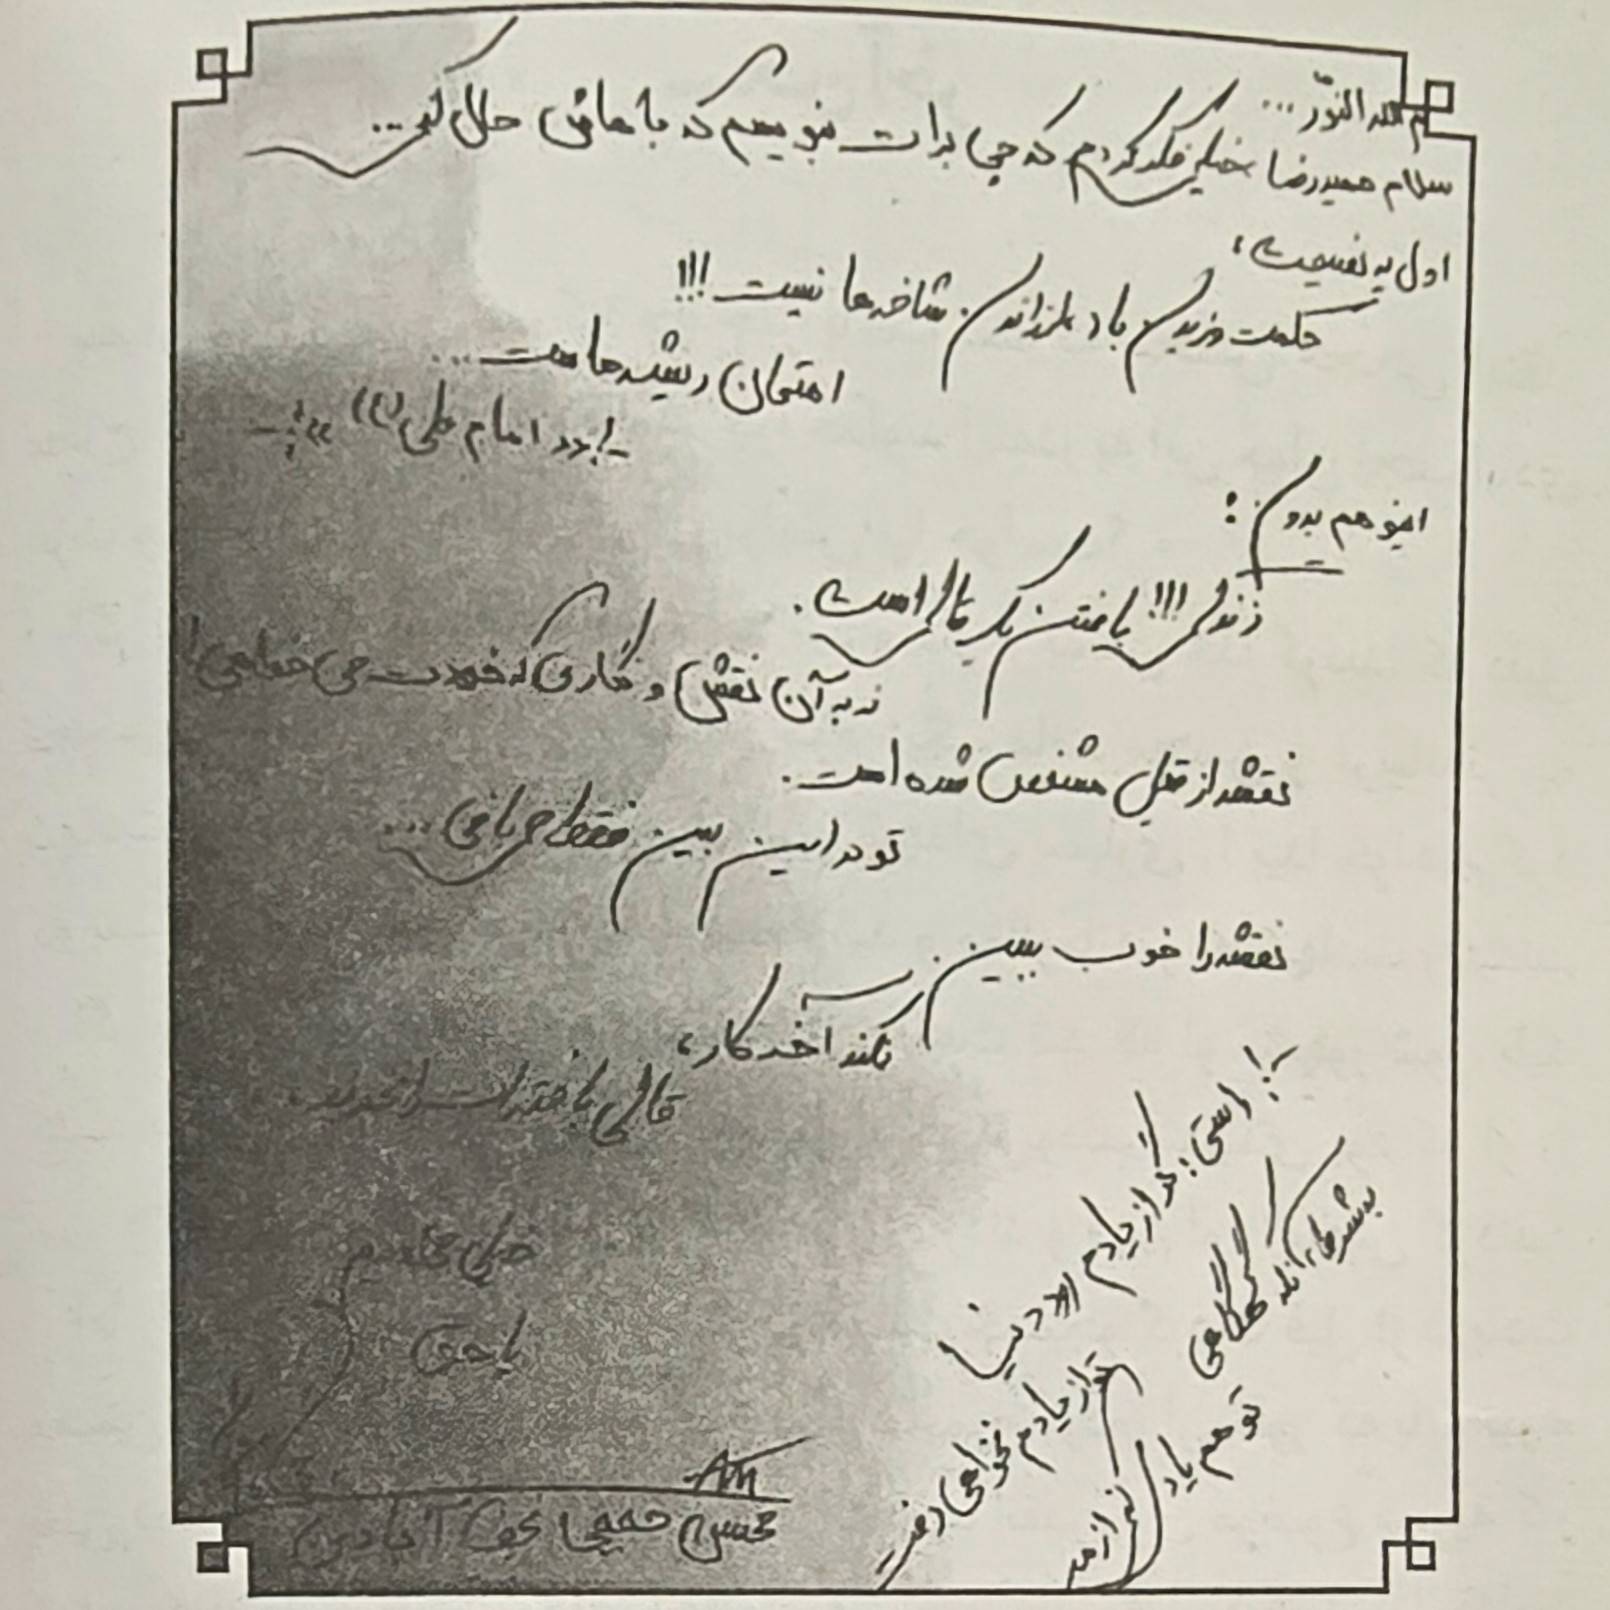 بسم الله النّور ...
سلام حمیدرضا خیلی فکر کردم که چی برات بنویسم که باهاش حال کنی ...
اول یه نصیحت؛
حکمت وزیدن باد، لرزاندن شاخه ها نیست !!!
امتحان ریشه هاست ...
-؛« امام علی (ع) »؛-
اینو هم بدون :
زندگی !!! بافتن یک قالی است .
نه به آن نقش و نگاری که خودت می خواهی !
نقشه از قبل مشخص شده است .
تو در این بین فقط می بافی ...
نقشه را خوب ببین
نکند آخر کار ،
قالی بافته ات را نخرند ...
خیلی مخلصیم
یا حق
محسن حججی نجف آبادی
راستی : گر از یادم رود دنیا
تو از یادم نخواهی رفت
به شرط آنکه گهگاهی
تو هم یادی کنی از من